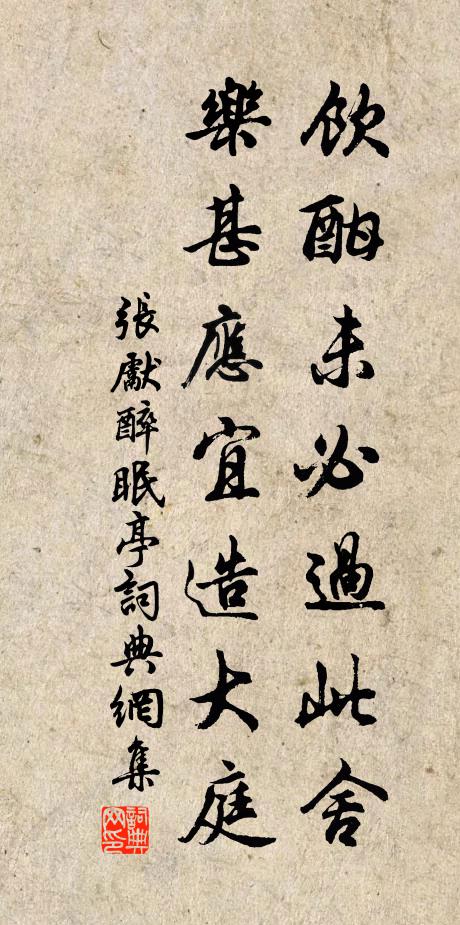 飲酣未必過此舍
樂甚應宜造大庭
張獻醉眠亭詞典網集
詞典網印